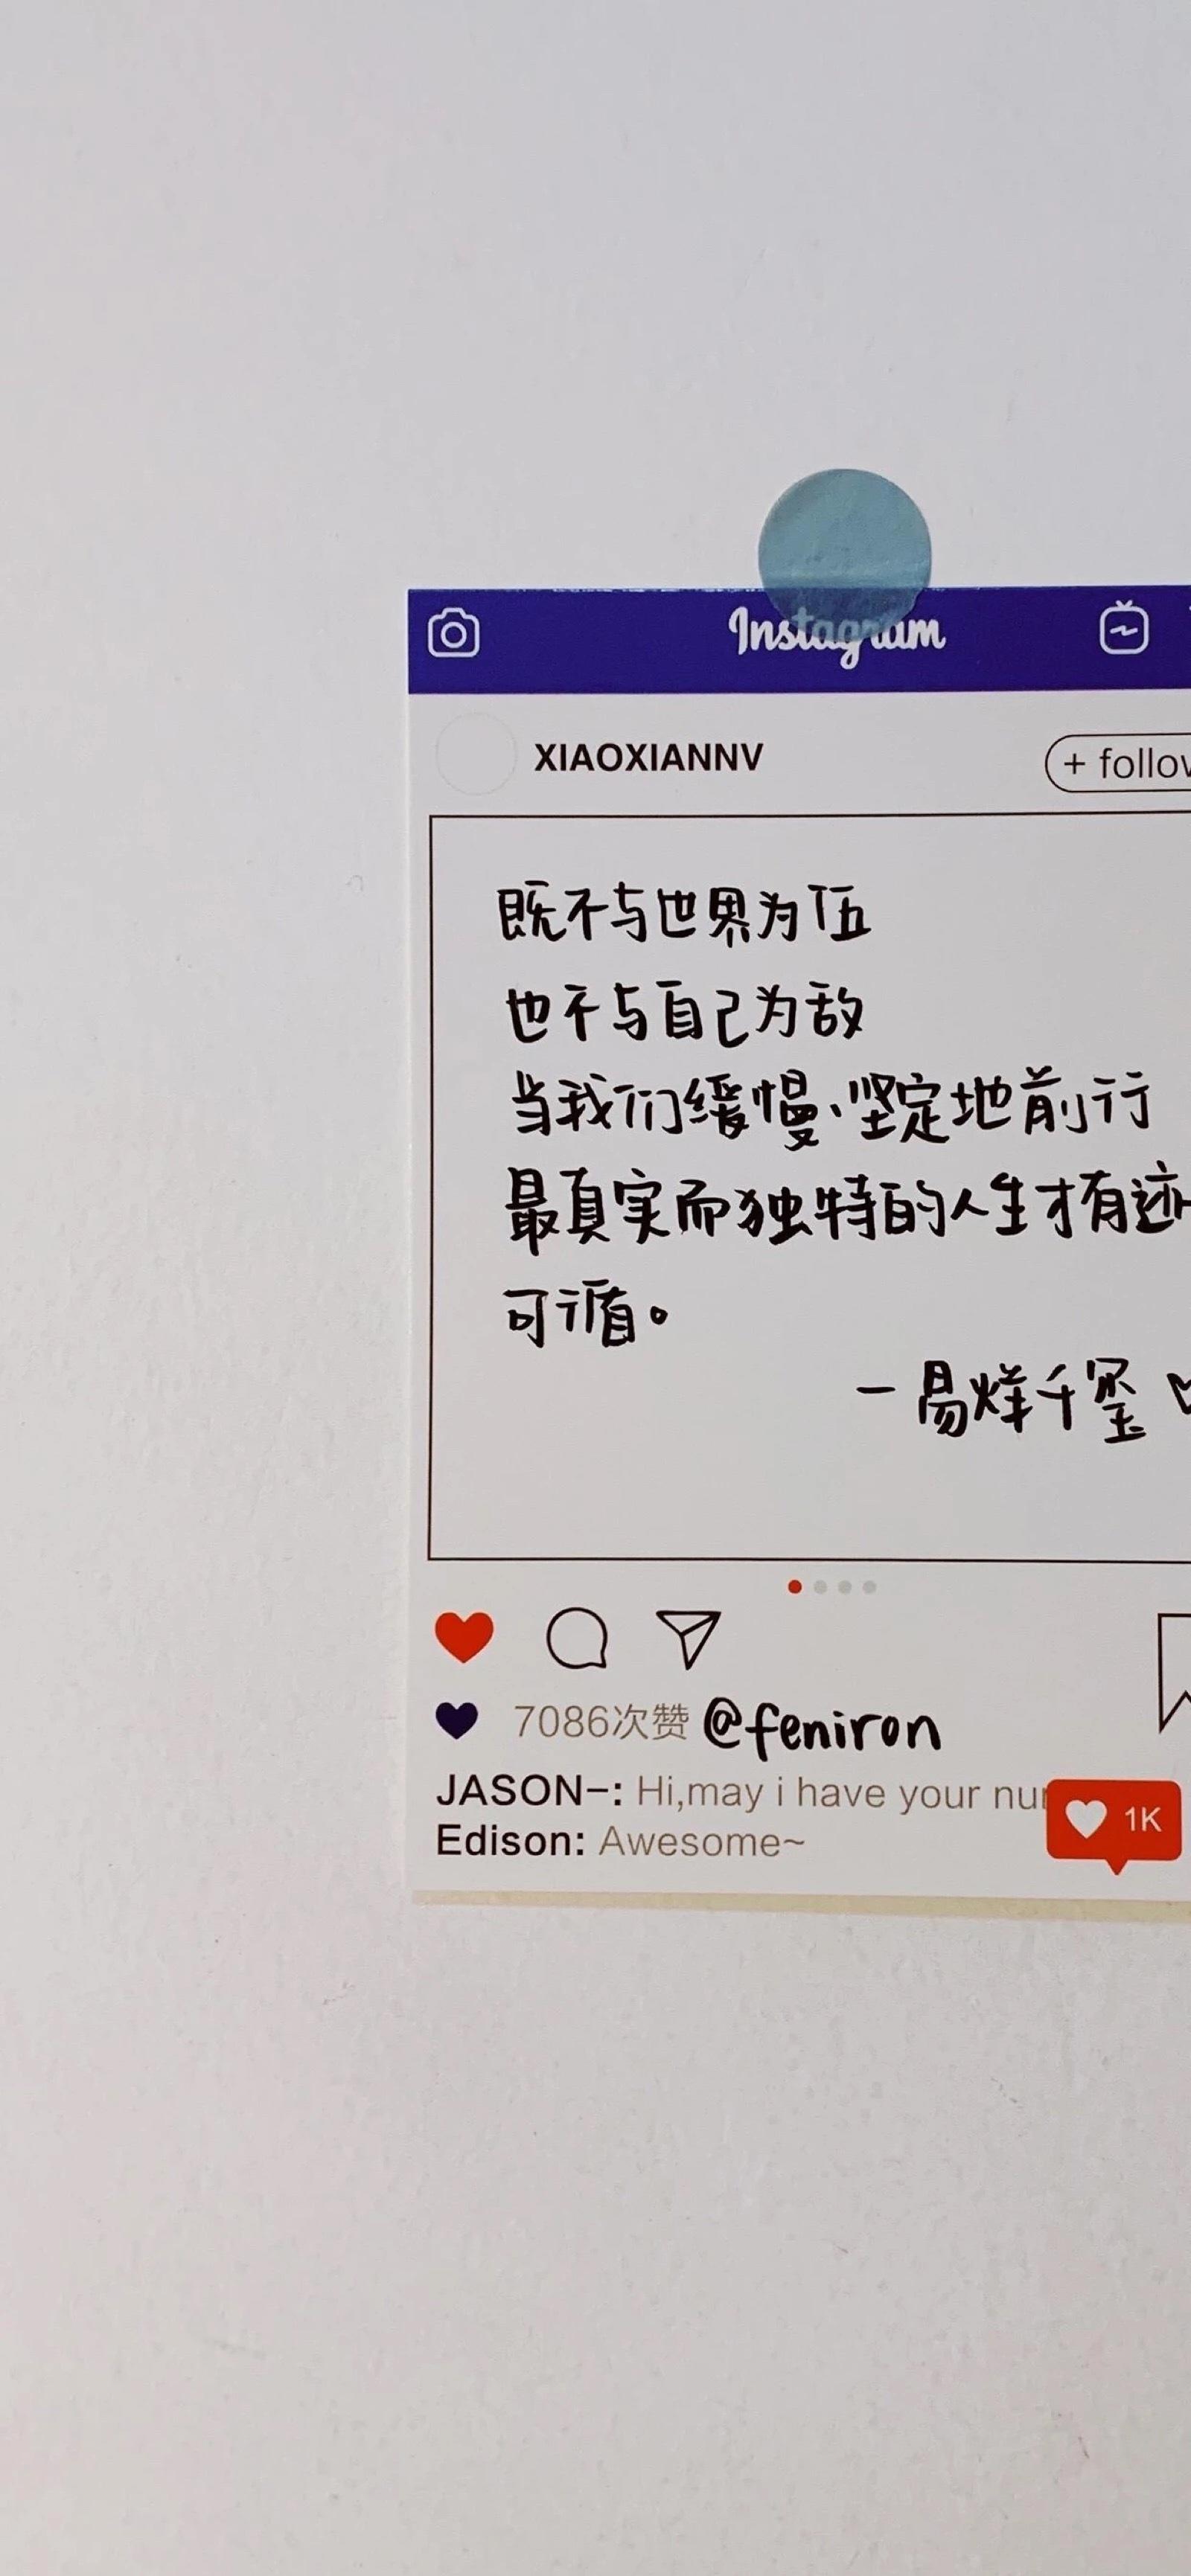 Instagram
XIAOXIANNV
+ follow
既不与世界为伍
也不与自己为敌
当我们缓慢、坚定地前行
最真实而独特的人生才有迹
可循。
一易烊千玺
7086次赞 @feniron
JASON-: Hi,may i have your
1K
Edison: Awesome~